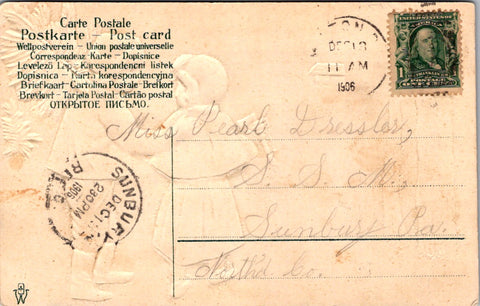 Carte Postale
Postkarte – Post card
Weltpostverein – Union postale universelle
Correspondenz Karte – Dopisnice
Levelező Lap – Korespondencní lístek
Dopisnica – Karta korespondencyjna
Briefkaart – Cartolina Postale – Brefkort
Brevkort – Tarjeta Postal – Cartão postal
ОТКРЫТОЕ ПИСЬМО.
TON
DEC 18
11 AM
1906
1
FRANKLIN
Miss Pearl Dressler,
S. S. M.
Sunbury Pa.
North'd Co.
SUNBURY
DEC 1
230 PM
1906
W